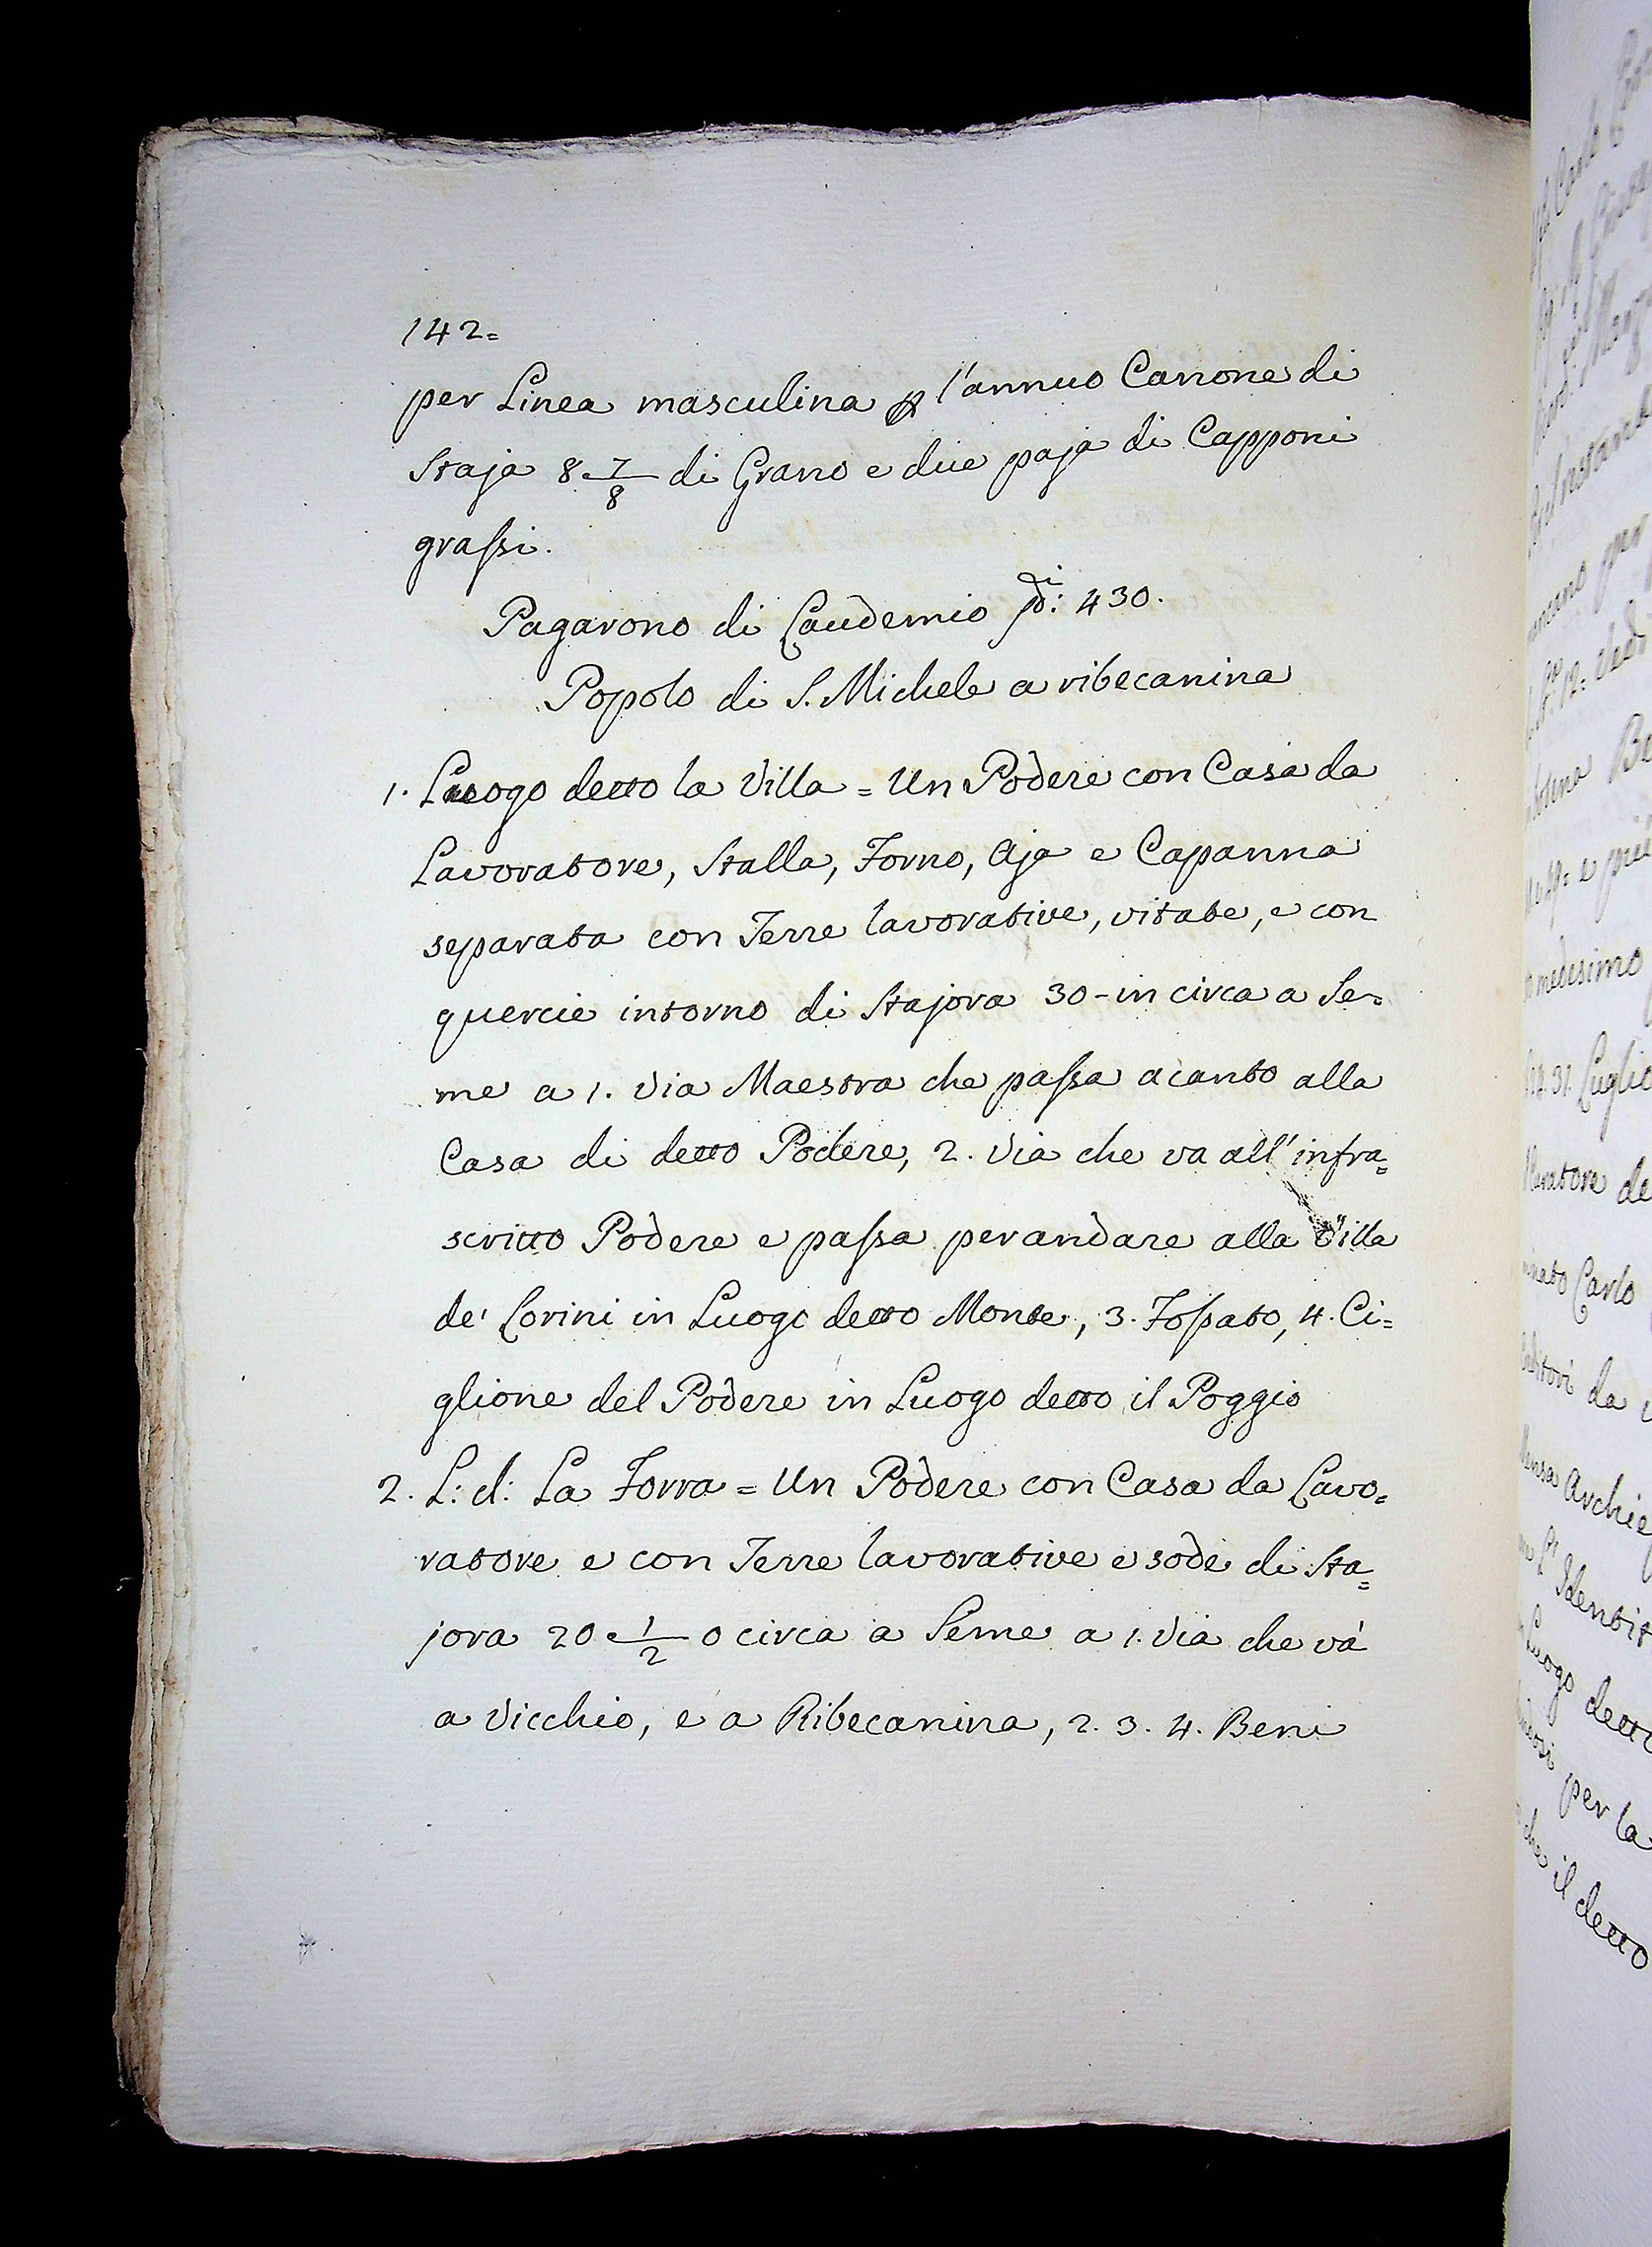 142=
per Linea masculina p l'annuo Canone di
Staja 8 7/8 di Grano e due paja di Capponi
grassi.
Pagarono di Laudemio 430.
Popolo di S. Michele a ribecanina
1. Luogo detto la Villa = Un Podere con Casa da
Lavoratore, Stalla, Forno, Aja e Capanna
separata con Terre lavorative, vitate, e con
quercie intorno di Stajora 30 - in circa a Se=
me a 1. Via Maestra che passa acanto alla
Casa di detto Podere, 2. Via che va all' infra=
scritto Podere e passa per andare alla Villa
de' Lorini in Luogo detto Monte, 3. Fossato, 4. Ci=
glione del Podere in Luogo detto il Poggio
2. L: d: La Forra = Un Podere con Casa da Lavo=
ratore e con Terre lavorative e sode di Sta=
jora 20 1/2 o circa a Seme a 1. Via che và
a Vicchio, e a Ribecanina, 2. 3. 4. Beni
medesimo
31. Luglio
Carlo
da
Archie
Luogo detto
per la
che il detto